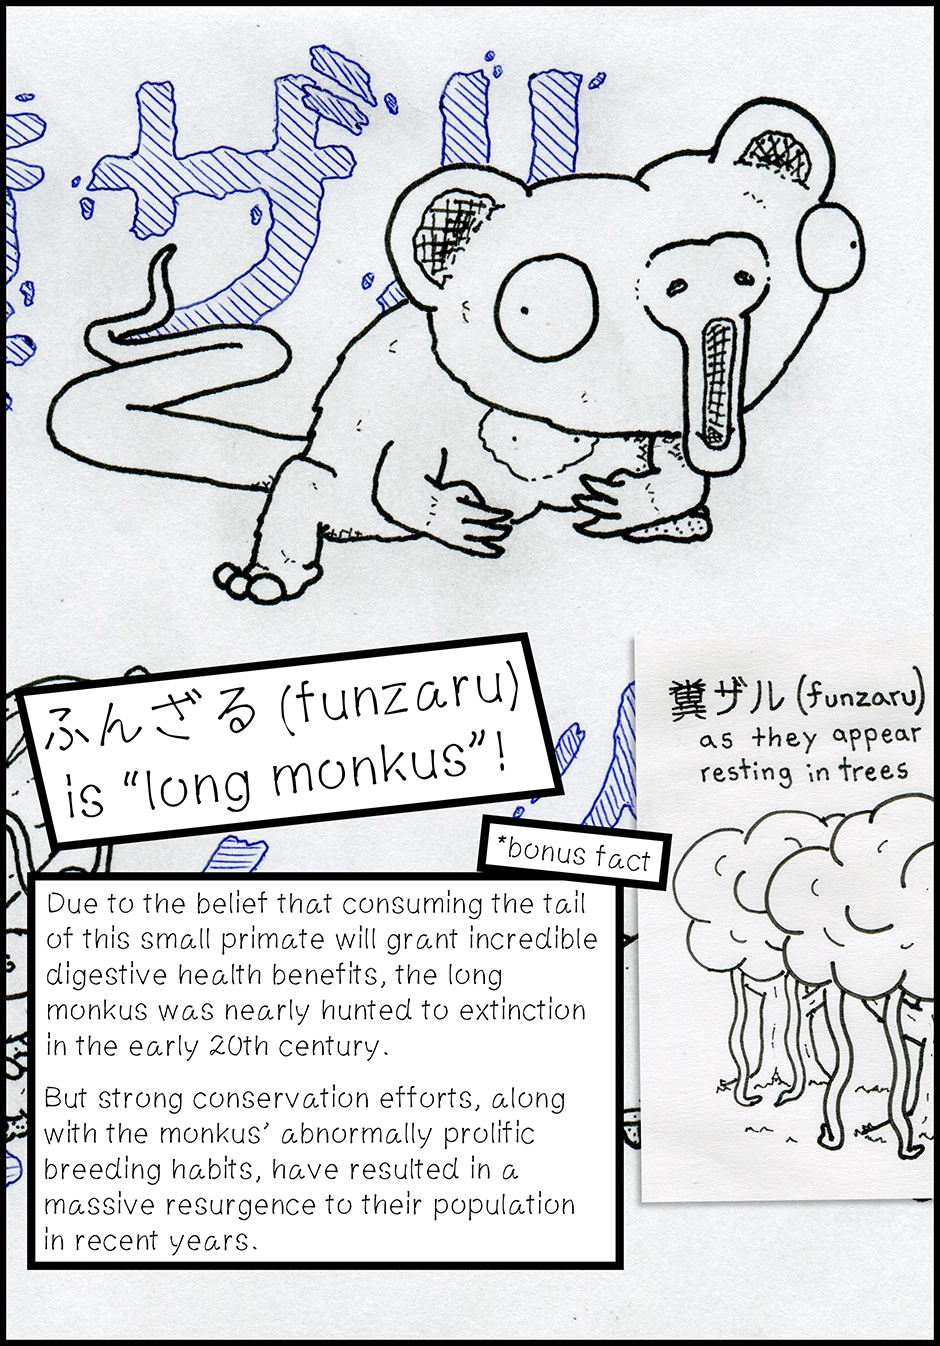 ザル
ふんざる (funzaru)
is “long monkus”!
糞ザル (funzaru)
as they appear
resting in trees
*bonus fact
Due to the belief that consuming the tail
of this small primate will grant incredible
digestive health benefits, the long
monkus was nearly hunted to extinction
in the early 20th century.
But strong conservation efforts, along
with the monkus’ abnormally prolific
breeding habits, have resulted in a
massive resurgence to their population
in recent years.